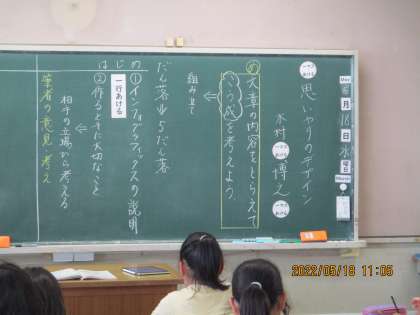 5月18日水曜日
思いやりのデザイン
木村 博之
め
文章の内容をとらえて
こう成を考えよう。
組み立て
だん落⇒5だん落
はじめ
①インフォグラフィックスの説明
一行あける
②作るときに大切なこと
相手の立場から考える
筆者の意見・考え
2022/05/18 11:05